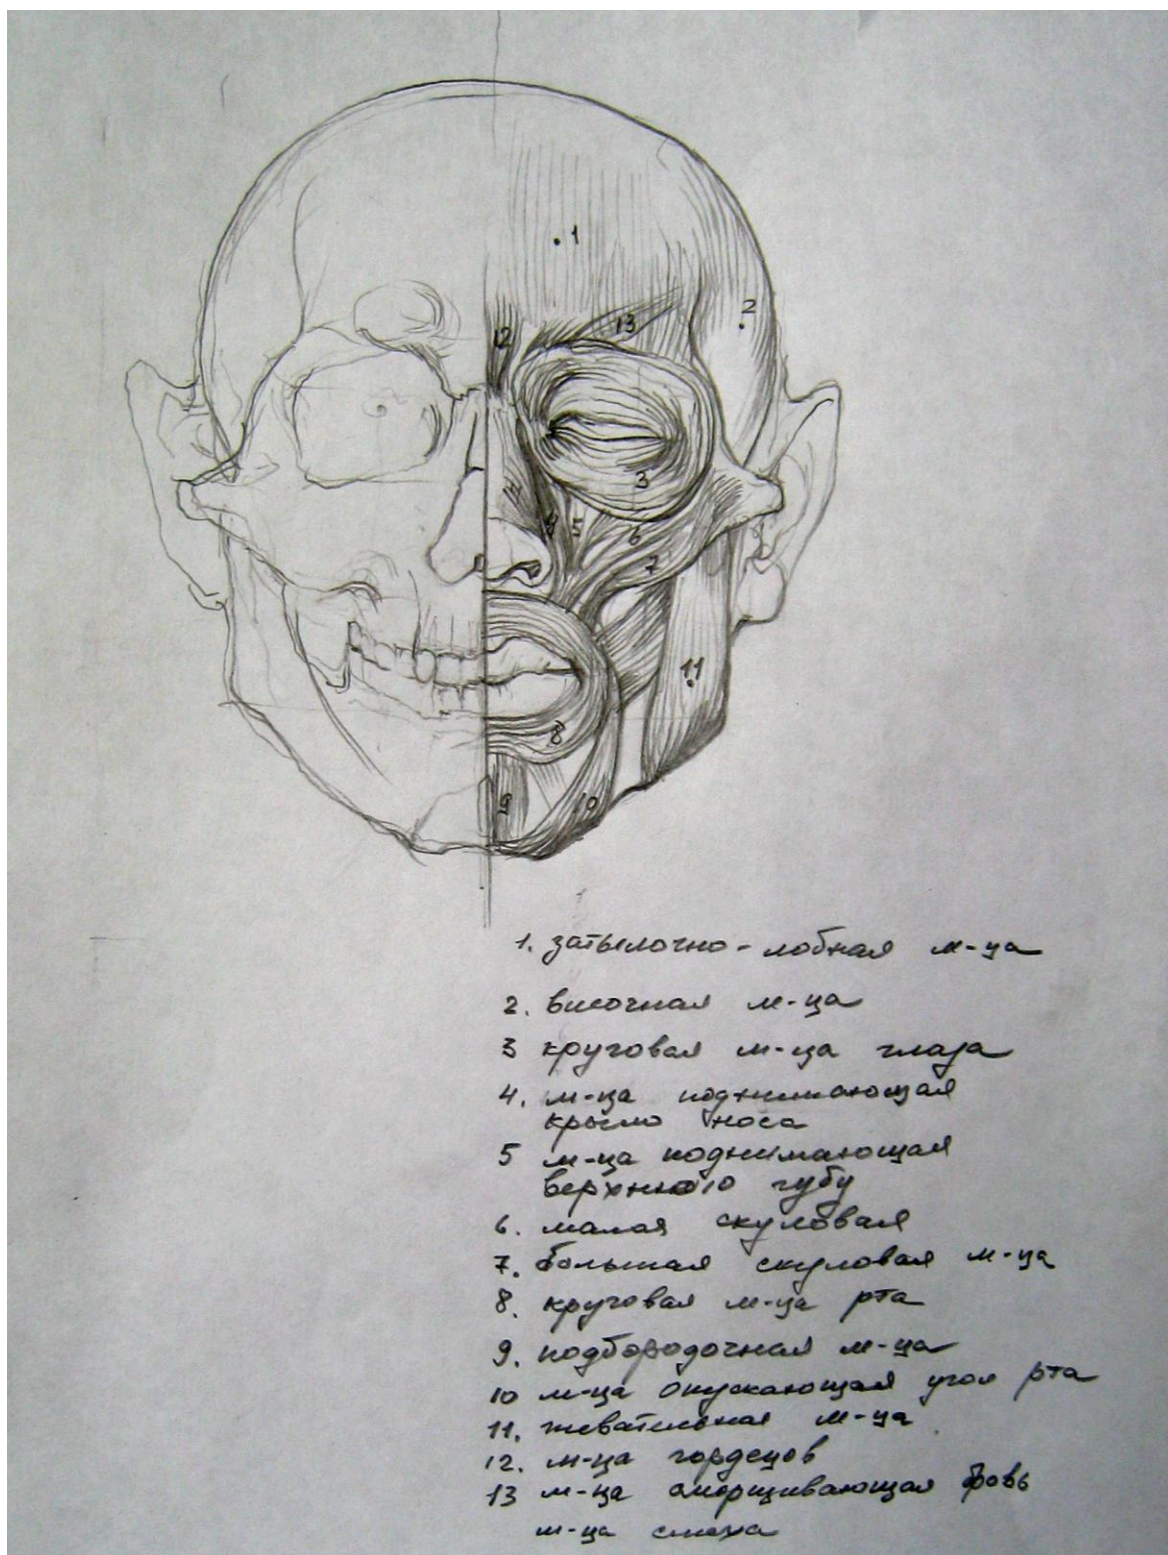 1
2
12
13
3
4
5
6
7
11
8
9
10
1. затылочно-лобная м-ца
2. височная м-ца
3 круговая м-ца глаза
4. м-ца поднимающая
крыло носа
5 м-ца поднимающая
верхнюю губу
6. малая скуловая
7. большая скуловая м-ца
8. круговая м-ца рта
9. подбородочная м-ца
10 м-ца опускающая угол рта
11. жевательная м-ца
12. м-ца гордецов
13 м-ца сморщивающая бровь
м-ца смеха